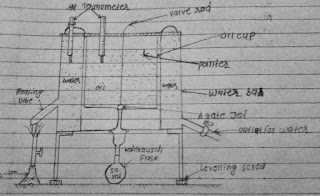 Termometer
valve rod
oil cup
pointer
water
oil
water
water bat
Agate Jet
outlet for water
kohlrausch
Flask
50
ml
Levelling screw